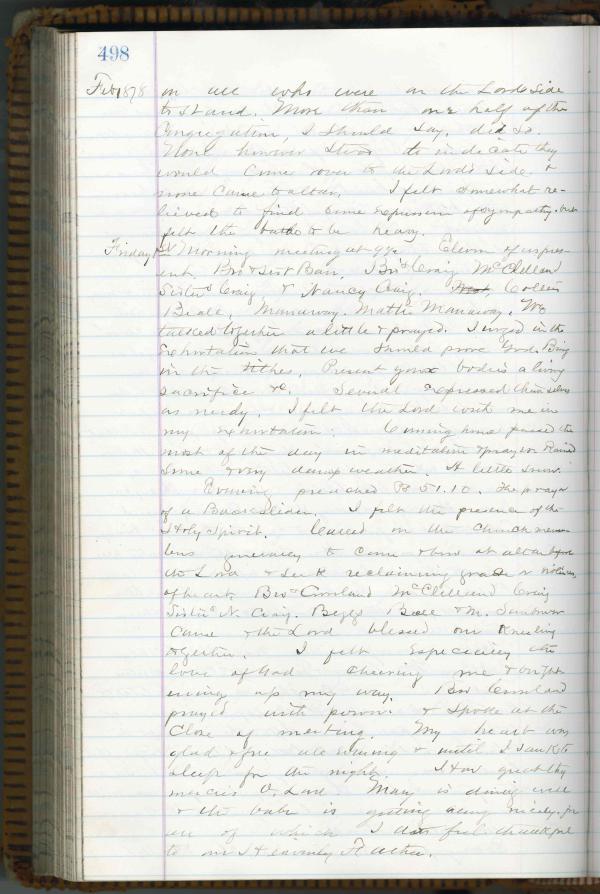 498
Feb 1878 on all who were on the Lords side
to stand. More than one half of the
Congregation, I should say, did so.
None however stood to indicate they
would come over to the Lord's side &
none came to altar. I felt somewhat re-
lieved to find some expression of sympathy but
felt the to be heavy.
Friday Morning meeting at 9½. Eleven of us pres-
ent, Bro & Sist Barr, Bros Craig McClelland
Sisters Craig & Nancy Craig. Collins
Beall, Manaway. Mattie Manaway. We
talked together a little & prayed. I urged in the
Exhortation that we should prove God. Bring
in the tithes, Present your bodies a living
sacrifice &c. Several expressed themselves
as needy. I felt the Lord with me in
my exhortation. Coming home passed the
most of the day in meditation & prayer. Rained
some & very damp weather. A little snow.
Evening preached Ps 51.10. The prayer
of a Backslider. I felt the presence of the
Holy Spirit. Called on the Church mem-
bers generally to come & bow at altar before
the Lord & seek reclaiming grace or
of heart. Bros McClelland Craig
Sisters N. Craig. Beggs Beall & M.
came & the Lord blessed our kneeling
together. I felt especially the
love of God cheering me & bright-
ening up my way. Bro
prayed with power & spoke at the
close of meeting. My heart was
glad & free all evening & until I sank to
sleep for the night. How great thy
mercies O, Lord. Mary is doing well
& the babe is getting along nicely. for
all of which I do feel thankful
to our Heavenly Father.